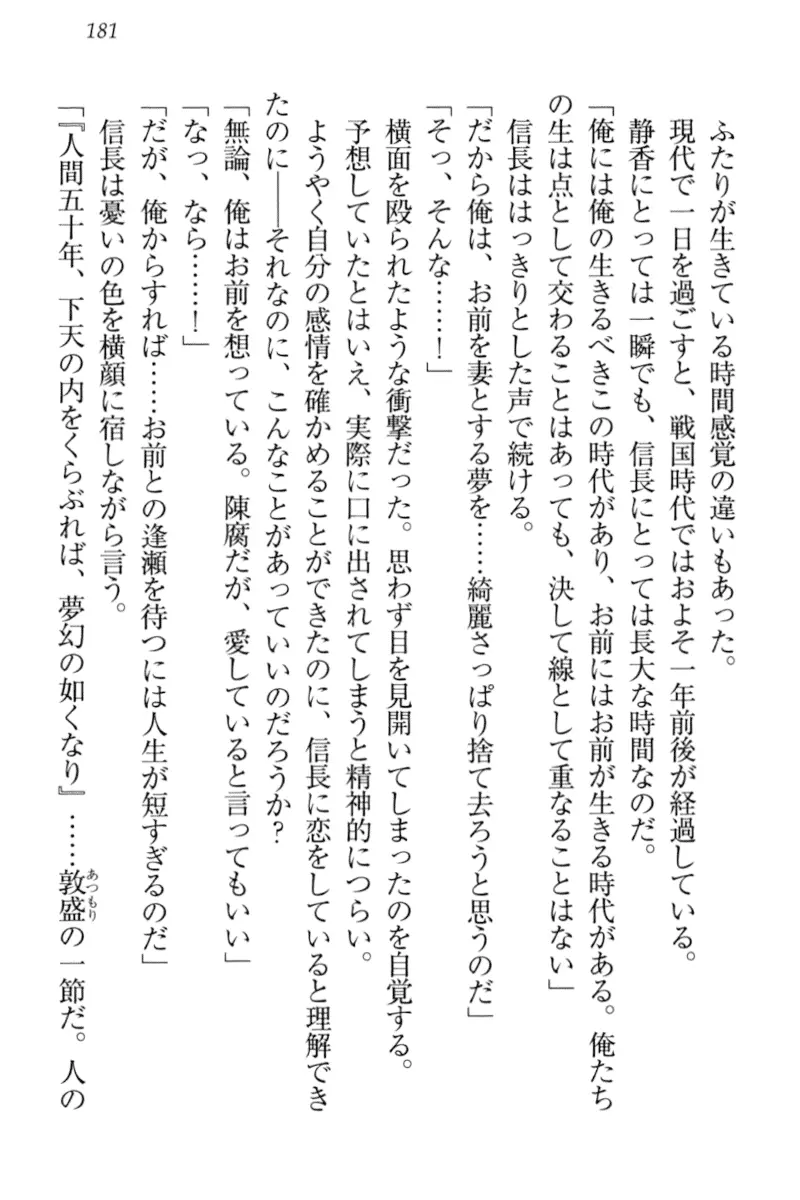 181
ふたりが生きている時間感覚の違いもあった。
現代で一日を過ごすと、戦国時代ではおよそ一年前後が経過している。
静香にとっては一瞬でも、信長にとっては長大な時間なのだ。
「俺には俺の生きるべきこの時代があり、お前にはお前が生きる時代がある。俺たち
の生は点として交わることはあっても、決して線として重なることはない」
信長ははっきりとした声で続ける。
「だから俺は、お前を妻とする夢を……綺麗さっぱり捨て去ろうと思うのだ」
「そっ、そんな……！」
横面を殴られたような衝撃だった。思わず目を見開いてしまったのを自覚する。
予想していたとはいえ、実際に口に出されてしまうと精神的につらい。
ようやく自分の感情を確かめることができたのに、信長に恋をしていると理解でき
たのに――それなのに、こんなことがあっていいのだろうか？
「無論、俺はお前を想っている。陳腐だが、愛していると言ってもいい」
「なっ、なら……！」
「だが、俺からすれば……お前との逢瀬を待つには人生が短すぎるのだ」
信長は憂いの色を横顔に宿しながら言う。
「『人間五十年、下天の内をくらぶれば、夢幻の如くなり』……敦盛の一節だ。人の
あつもり